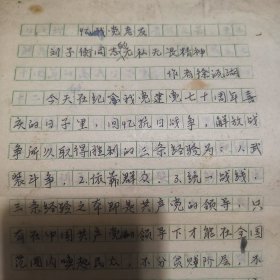 忆我党老友
刘子衡同志的无私无畏精神
作者徐
一、今天在纪念我党建党七十周年喜
庆的日子里，回忆抗日战争，解放战
争所以取得胜利的三条经验为：1.武
装斗争，2.依靠群众，3.统一战线，
三条经验之本即是共产党的领导，只
有在中国共产党的领导下才能在全国
范围内唤起民众，不分贫贱阶层，